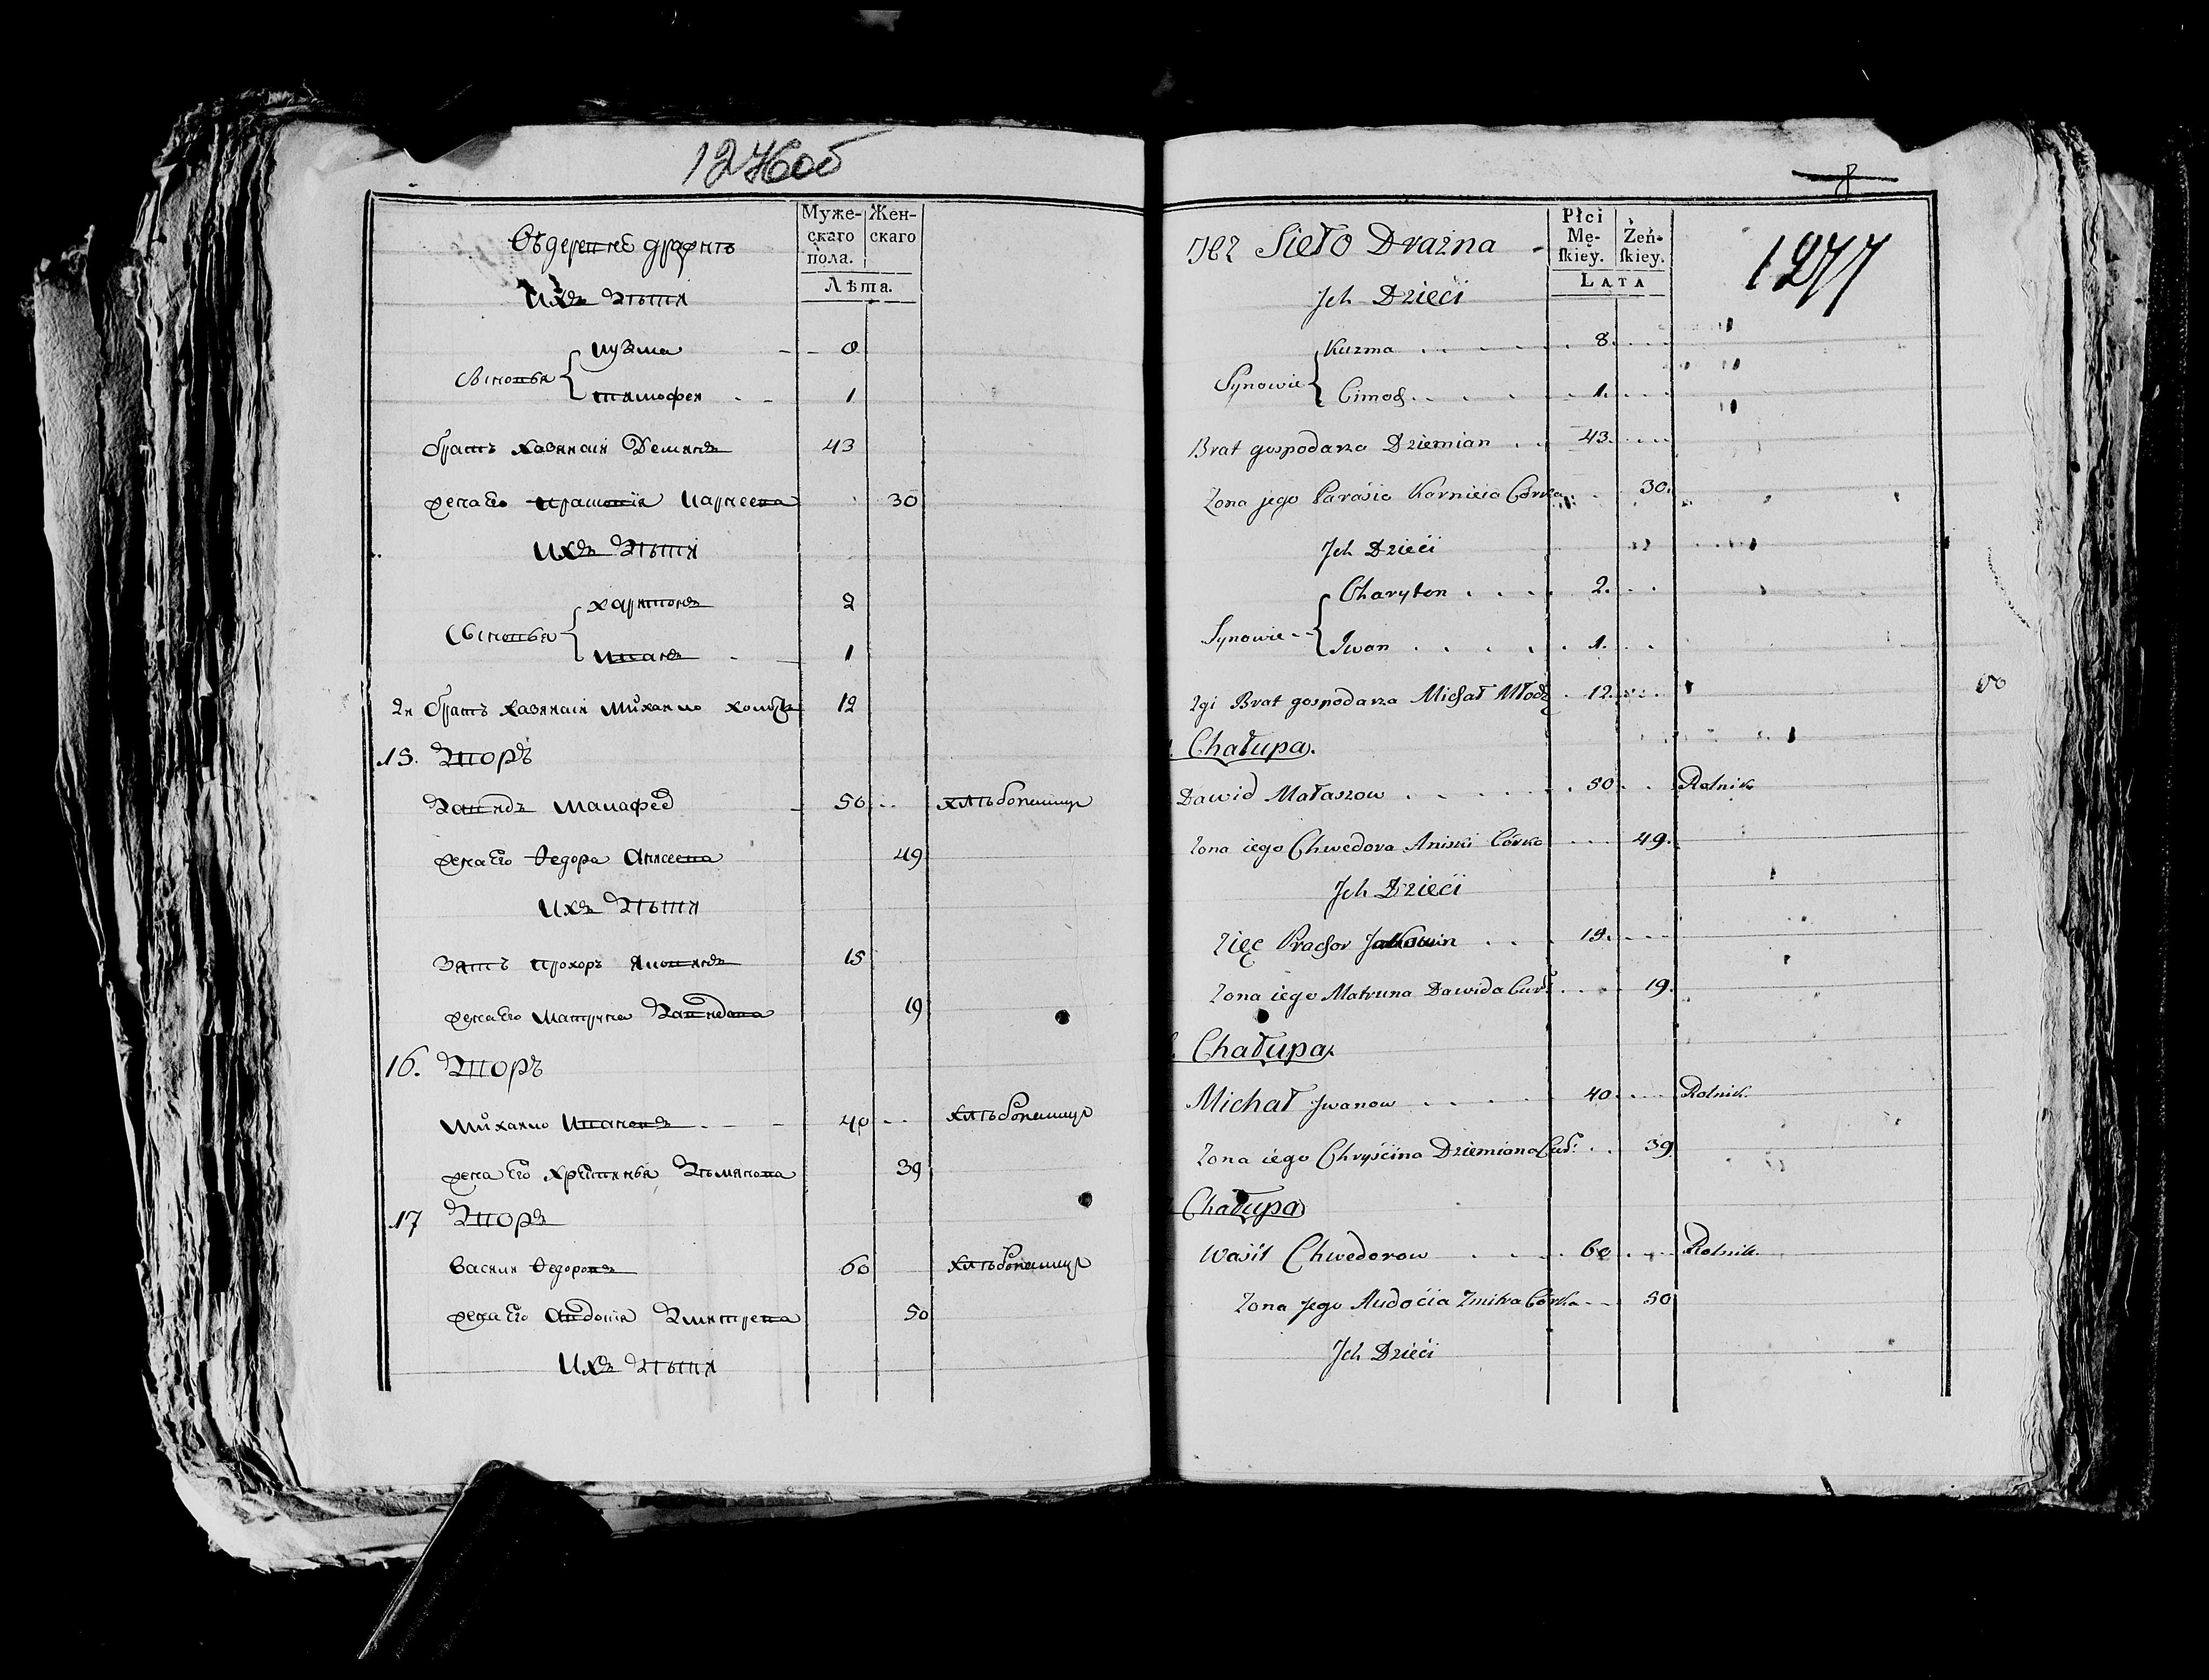 1276об
Въ деревнѣ Дражнѣ
Муже-
скаго
пола.
Жен-
скаго
Лѣта.
ихъ дѣти
Сыновья
кузма 8
тимофей 1
братъ хазяина Демянъ 43
жена его Карнеева 30
ихъ дѣти
Сыновья
харитонъ 2
иванъ 1
2й братъ хазяина михаило холостъ 12
15. Дворъ
Давидъ 50 хлѣбопашцъ
жена его Федора Анисева 49
ихъ дѣти
зять прохоръ 15
жена его матруна Давидова 19
16. Дворъ
михаило Ивановъ 40 хлѣбопашцъ
жена его Демянова 39
17 Дворъ
Васили Федоровъ 60 хлѣбопашцъ
жена его Авдотiя Дмитрева 50
ихъ дѣти
Sieło Drażna
Płci
Mę-
skiey.
Żeń-
skiey.
Lata
1277
Jch Dzieci
Synowie
Kuzma 8.
Cimoch 1.
Brat gospodarza Dziemian 43.
Żona jego Parasia Karnieia Córka 30.
Jch Dzieci
Synowie
Charyton 2.
Jwan 1.
2gi Brat gospodarza Michał Młodz 12.
Chałupa.
Dawid Małaszow 50 Rolnik
Żona iego Chwedora Aniski Córka 49.
Jch Dzieci
Zięć Prachor 15.
Żona iego Matruna Dawida Cur: 19.
Chałupa.
Michał Jwanow 40 Rolnik.
Żona iego Chryścina Dziemiana Cur: 39
Chałupa
Wasil Chwedorow 60 Rolnik.
Żona Jego Audocia Zmitra Córka 50
Jch Dzieci